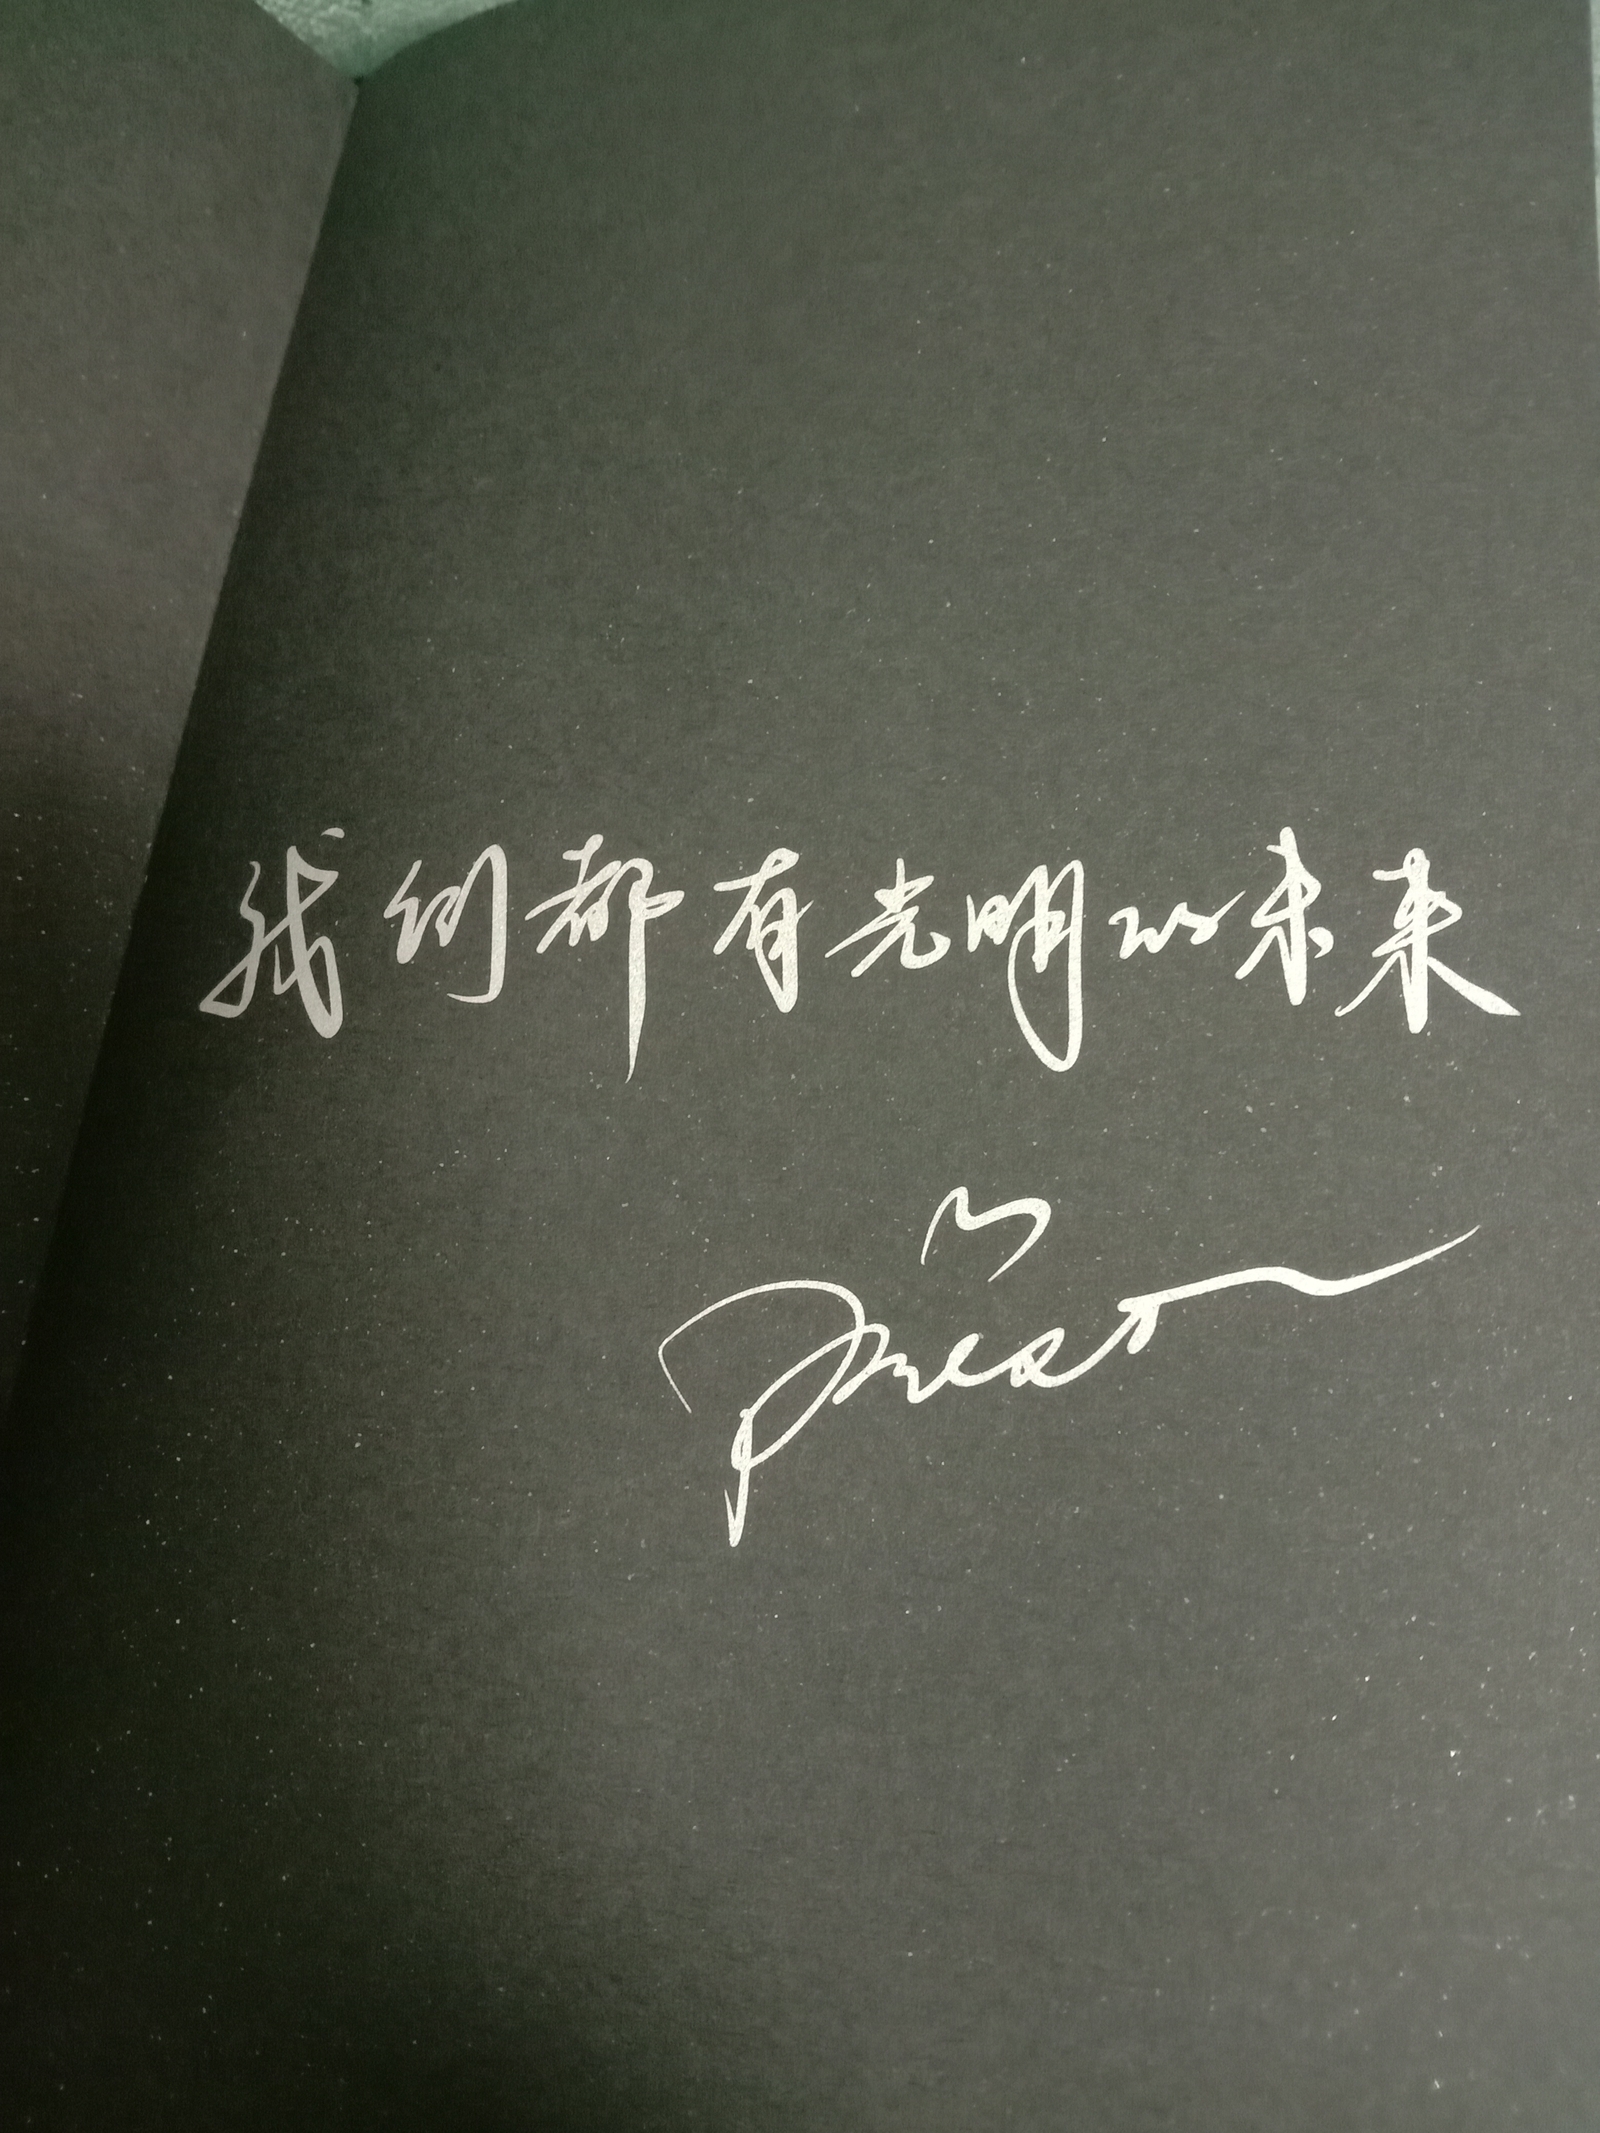 我们都有光明的未来
Priest